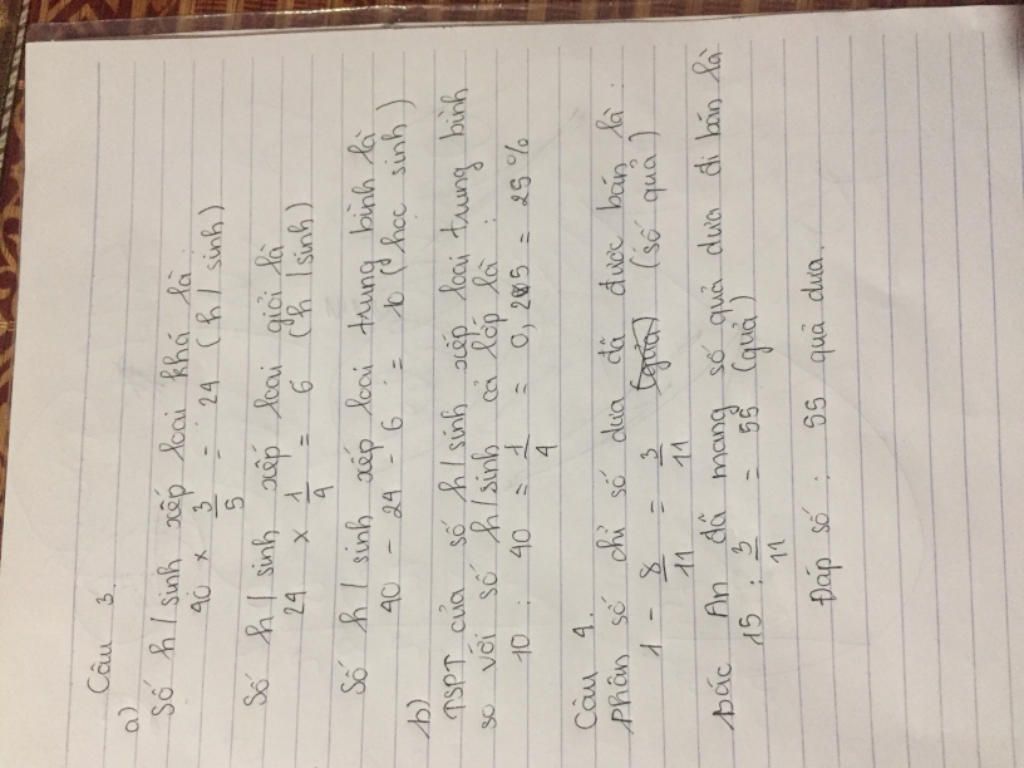 Câu 3.
a)
Số h/sinh xếp loại khá là:
40 × 3/5 = 24 (h/sinh)
Số h/sinh xếp loại giỏi là
24 × 1/4 = 6 (h/sinh)
Số h/sinh xếp loại trung bình là
40 - 24 - 6 = 10 (học sinh)
b)
TSPT của số h/sinh xếp loại trung bình
so với số h/sinh cả lớp là:
10 : 40 = 1/4 = 0,25 = 25%
Câu 4.
Phân số chỉ số dưa đã được bán là:
1 - 8/11 = 3/11 (số quả)
Bác An đã mang số quả dưa đi bán là
15 : 3/11 = 55 (quả)
Đáp số : 55 quả dưa.